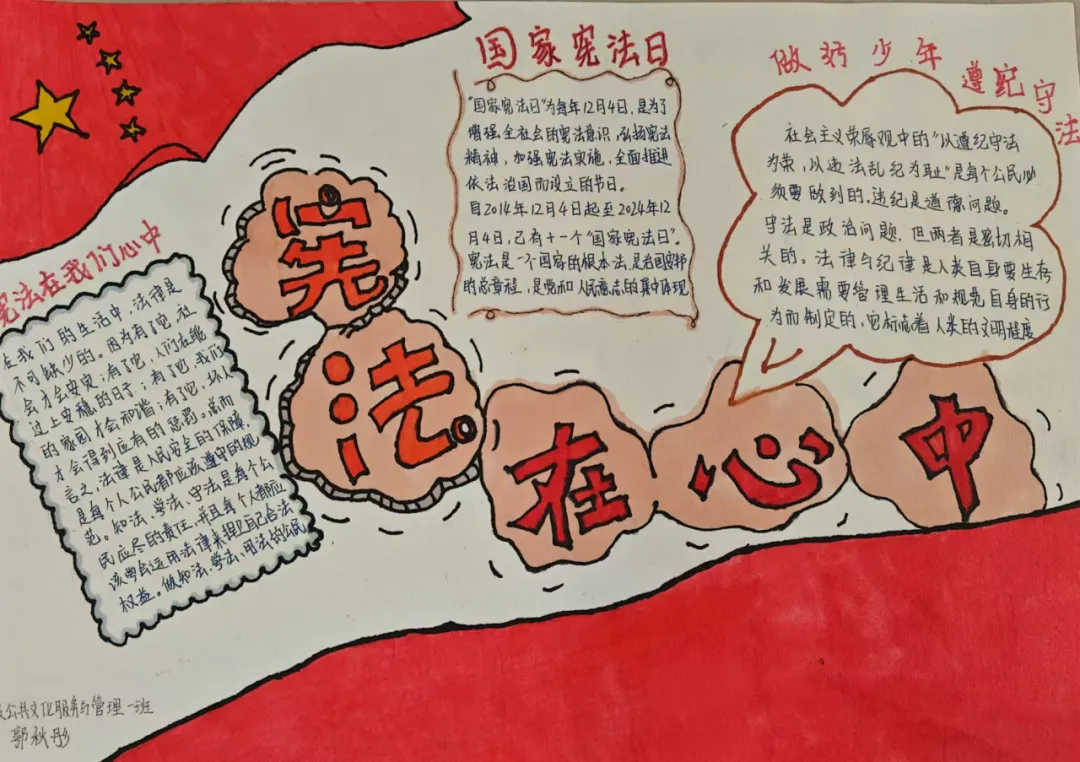 国家宪法日
"国家宪法日"为每年12月4日,是为了
增强全社会的宪法意识,弘扬宪法
精神,加强宪法实施,全面推进
依法治国而设立的节日。
自2014年12月4日起至2024年12
月4日,已有十一个"国家宪法日"。
宪法是一个国家的根本法,是治国安邦
的总章程,是党和人民意志的集中体现
做好少年
遵纪守法
社会主义荣辱观中的"以遵纪守法
为荣,以违法乱纪为耻"是每个公民必
须要做到的,违纪是道德问题。
守法是政治问题,但两者是密切相
关的。法律与纪律是人类自身要生存
和发展需要管理生活和视觉自身的行
为而制定的,它标志着人类的文明程度
宪法在我们心中
在我们的生活中,法律是
不可缺少的。因为有了它,社
会才会安定;有了它,人们在能
过上安稳的日子;有了它,我们
的家园才会和谐;有了它,坏人
才会得到应有的惩罚。总而
言之,法律是人民安全的保障
是每个人公民都应该遵守的规
范。知法、学法、守法是每个公
民应尽的责任,并且每个人都应
该学会运用法律来捍卫自己合法
权益。做知法,学法,用法的公民
宪法在心中
公共文化服务与管理一班
郭秋彤